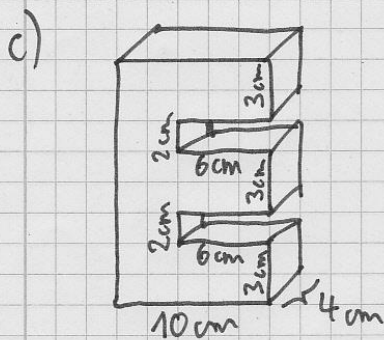 c)
3cm
2cm
6cm
3cm
2cm
6cm
3cm
4cm
10cm